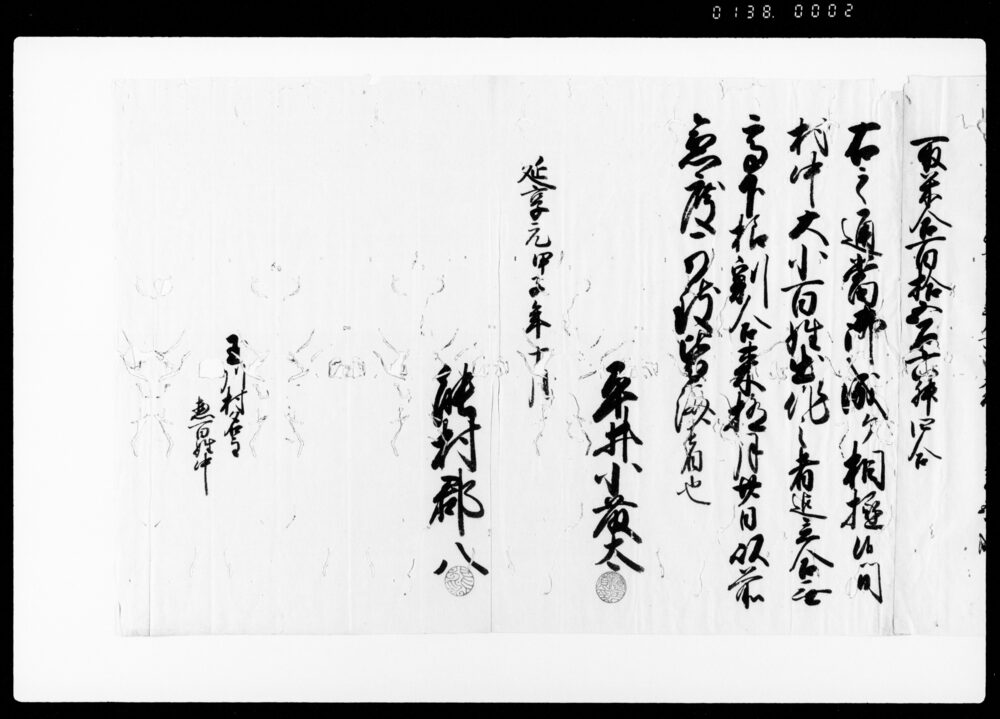 0138. 0002
取米合百拾石斗升四合
右之通当御成ケ相極候間
村中大小百姓出作之者迄立合無
高下枯割合来極月廿日以前
急度可致皆済者也
延享元甲子年十月
平井小藤太
能村郡八
川村名主
惣百姓中